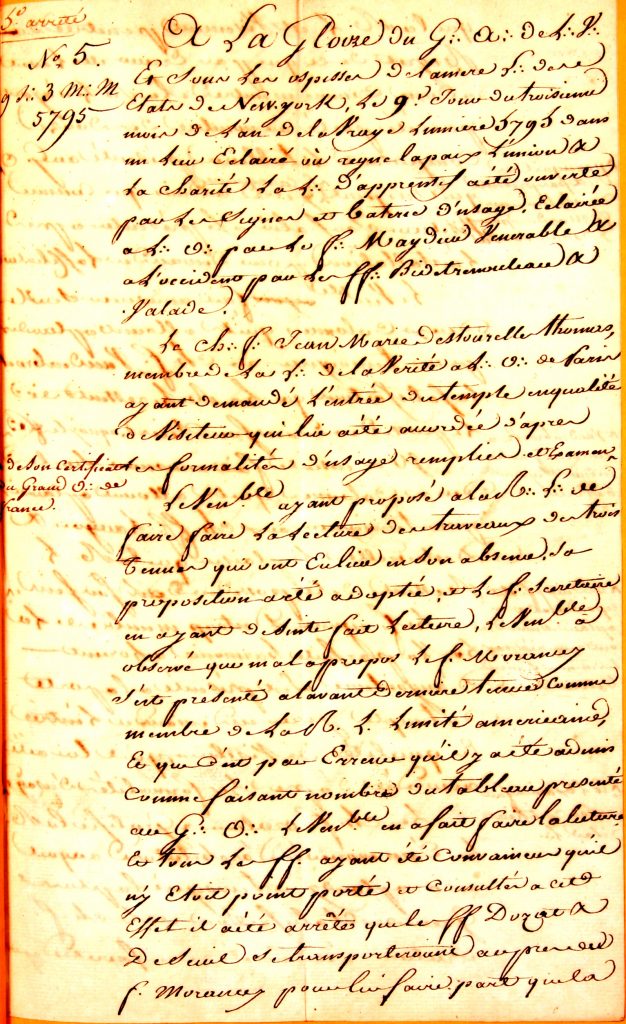 5e. arrêté
No. 5.
9 J∴ 3 M∴ M
5795
A La Gloire du G∴ A∴ de L∴ V∴
Et sous les ospisses de la mere L∴ des
Etats de New-york, Le 9e. Jour du troisieme
mois de L'an de la Vraye Lumiere 5795 dans
un lieu Eclairé où regne la paix L'union &
La Charité La L∴ D'apprentif a été ouverte
par les Signes et baterie d'usage. Eclairée
a L∴ O∴ par Le f∴ Maydieu Venerable &
a L'occident par les ff∴ Bidetrenouleau &
Valade.
Le ch∴ f∴ Jean Marie Destourelle Thomas,
membre de La L∴ de la Verité a L∴ O∴ de Paris
ayant demandé L'entrée du temple en qualité
de Visiteur qui lui a été accordée d'apres
les formalités d'usage remplies et Examen
de Son Certificat
du Grand O∴ de
france.
Le Venble ayant proposé a la R∴ L∴ de
faire faire La Lecture des travaux des trois
Tenues qui ont Eu lieu en Son absence, Sa
proposition a été adoptée, et Le f∴ Secretaire
en ayant de Suite fait Lecture, Le Venble a
observé que mal a propos Le f. Morancy
s'est présenté a l'avant Derniere tenue Comme
membre de La R. L. L'unité americaine,
Et que c'est par Erreur qu'il y a été admis
Comme faisant nombre du tableau presenté
au G∴ O∴ Le Venble en a fait faire la lecture
Et tous Les ff. ayant été Convaincus qu'il
n'y Etoit point porté et Consultés a cet
Effet il a été arrêté que les ff Dozat &
Deseuil se transporteroient au pres du
f. Morancy pour lui faire part que la